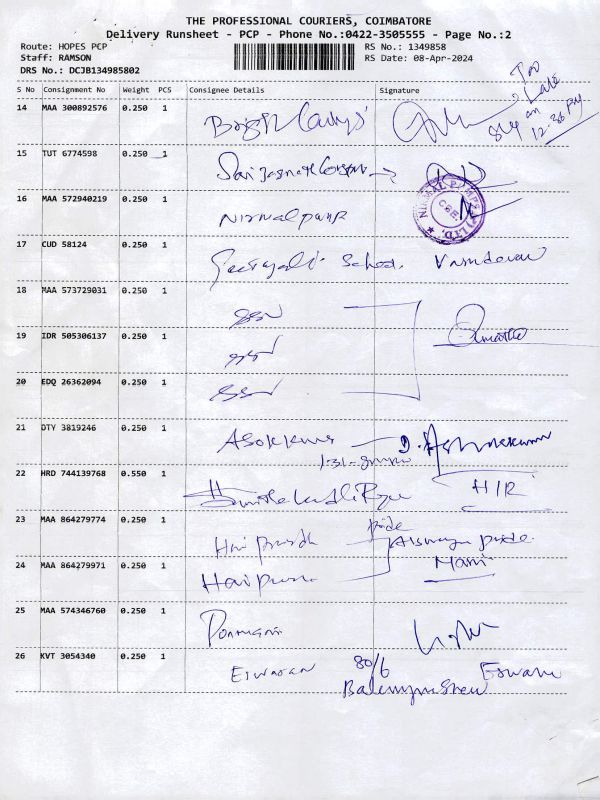 THE PROFESSIONAL COURIERS, COIMBATORE
Delivery Runsheet - PCP - Phone No.:0422-3505555 - Page No.:2
Route: HOPES PCP
RS No.: 1349858
Staff: RAMSON
RS Date: 08-Apr-2024
DRS No.: DCJB134985802
S No Consignment No Weight PCS Consignee Details Signature
Too
Late
14 MAA 300892576 0.250 1
12.30 PM
15 TUT 6774598 0.250 1
16 MAA 572940219 0.250 1 Nirmal pump
NIRMAL PUMPS (P) LTD. CBE
17 CUD 58124 0.250 1 School. Vasudevan
18 MAA 573729031 0.250 1
19 IDR 505306137 0.250 1
20 EDQ 26362094 0.250 1
21 DTY 3819246 0.250 1 Asokkumar D. Ashokkumar
22 HRD 744139768 0.550 1 H/R
pride
23 MAA 864279774 0.250 1 Hari Prasath pride.
24 MAA 864279971 0.250 1 Hari Mani
25 MAA 574346760 0.250 1 Ponmani
26 KVT 3054340 0.250 1 Eswaran 80/6 Eswaran